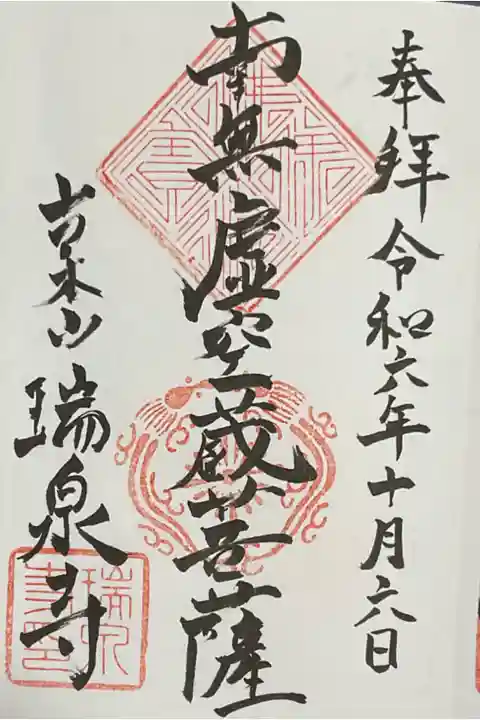 奉拝 令和六年十月六日
南無虚空蔵菩薩
木山 瑞泉寺
瑞泉
寺印